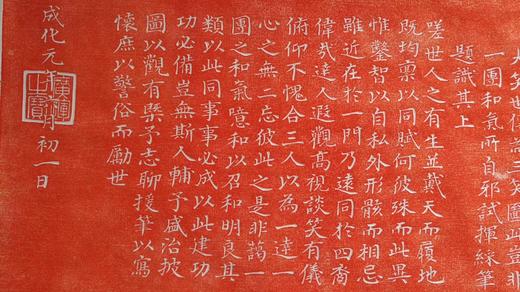 大笑世傳為三笑圖此豈非
一團和氣所自邪試揮綵筆
題識其上
嗟世人之有生並戴天而履地
既均稟以同賦何彼殊而此異
惟鑿智以自私外形骸而相忌
雖近在於一門乃遠同於四裔
偉哉達人遐觀高視談笑有儀
俯仰不愧合三人以為一達一
心之無二忘彼此之是非藹一
團之和氣噫和以召和明良其
類以此同事事必成以此建功
功必備豈無斯人輔予盛治披
圖以觀有槩予志聊援筆以寫
懷庶以警俗而勵世
成化元年月初一日
廣運之寶